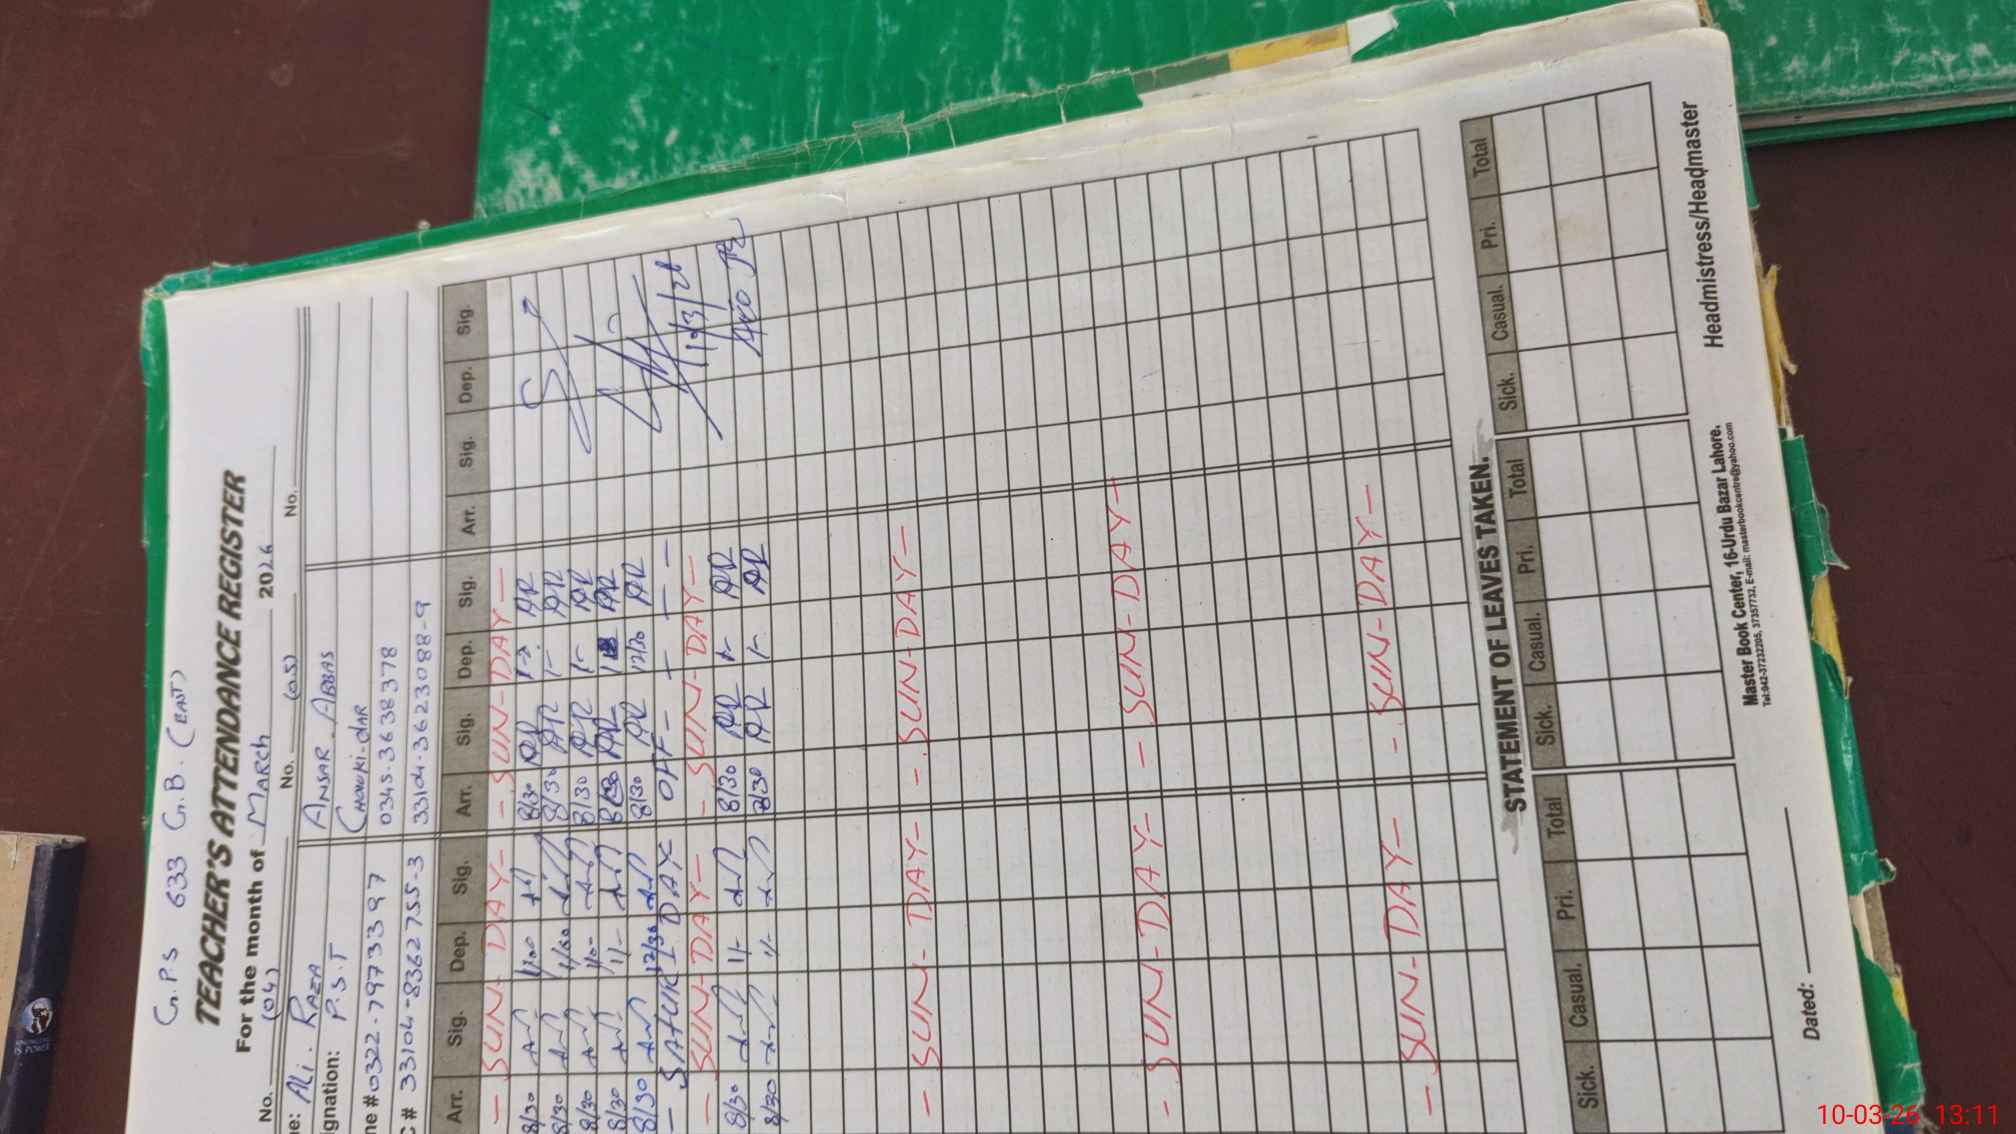 G.P.S 633 G.B. (EAST)
TEACHER'S ATTENDANCE REGISTER
For the month of MARCH 2026
No. (04) No. (05) No.
ne: Ali. RAZA ANSAR. ABBAS
ignation: P.S.T Chowki-dar
ne # 0322-7973397 0345-3638378
C # 33104-8362755-3 33104-3623088-9
Arr. Sig. Dep. Sig. Arr. Sig. Dep. Sig. Arr. Sig. Dep. Sig.
— SUN-DAY — — SUN-DAY —
8/30 1/00 8/30 AR AR
8/30 1/30 8/30 AR 1- AR
8/30 1/00 8/30 AR 1- AR
8/30 1/- 8/30 AR AR
8/30 12/30 8/30 AR 12/30 AR
— SATURIDAY OFF — — — —
— SUN-DAY — — SUN-DAY —
8/30 1/- 8/30 AR 1- AR
8/30 1/- 8/30 AR 1- AR
— SUN-DAY — — SUN-DAY —
— SUN-DAY — — SUN-DAY —
— SUN-DAY — — SUN-DAY —
STATEMENT OF LEAVES TAKEN.
Sick. Casual. Pri. Total Sick. Casual. Pri. Total Sick. Casual. Pri. Total
Dated:
Headmistress/Headmaster
Master Book Center, 16-Urdu Bazar Lahore.
Tel:042-37232205, 37357732, E-mail: masterbookcentre@yahoo.com
10-03-26 13:11